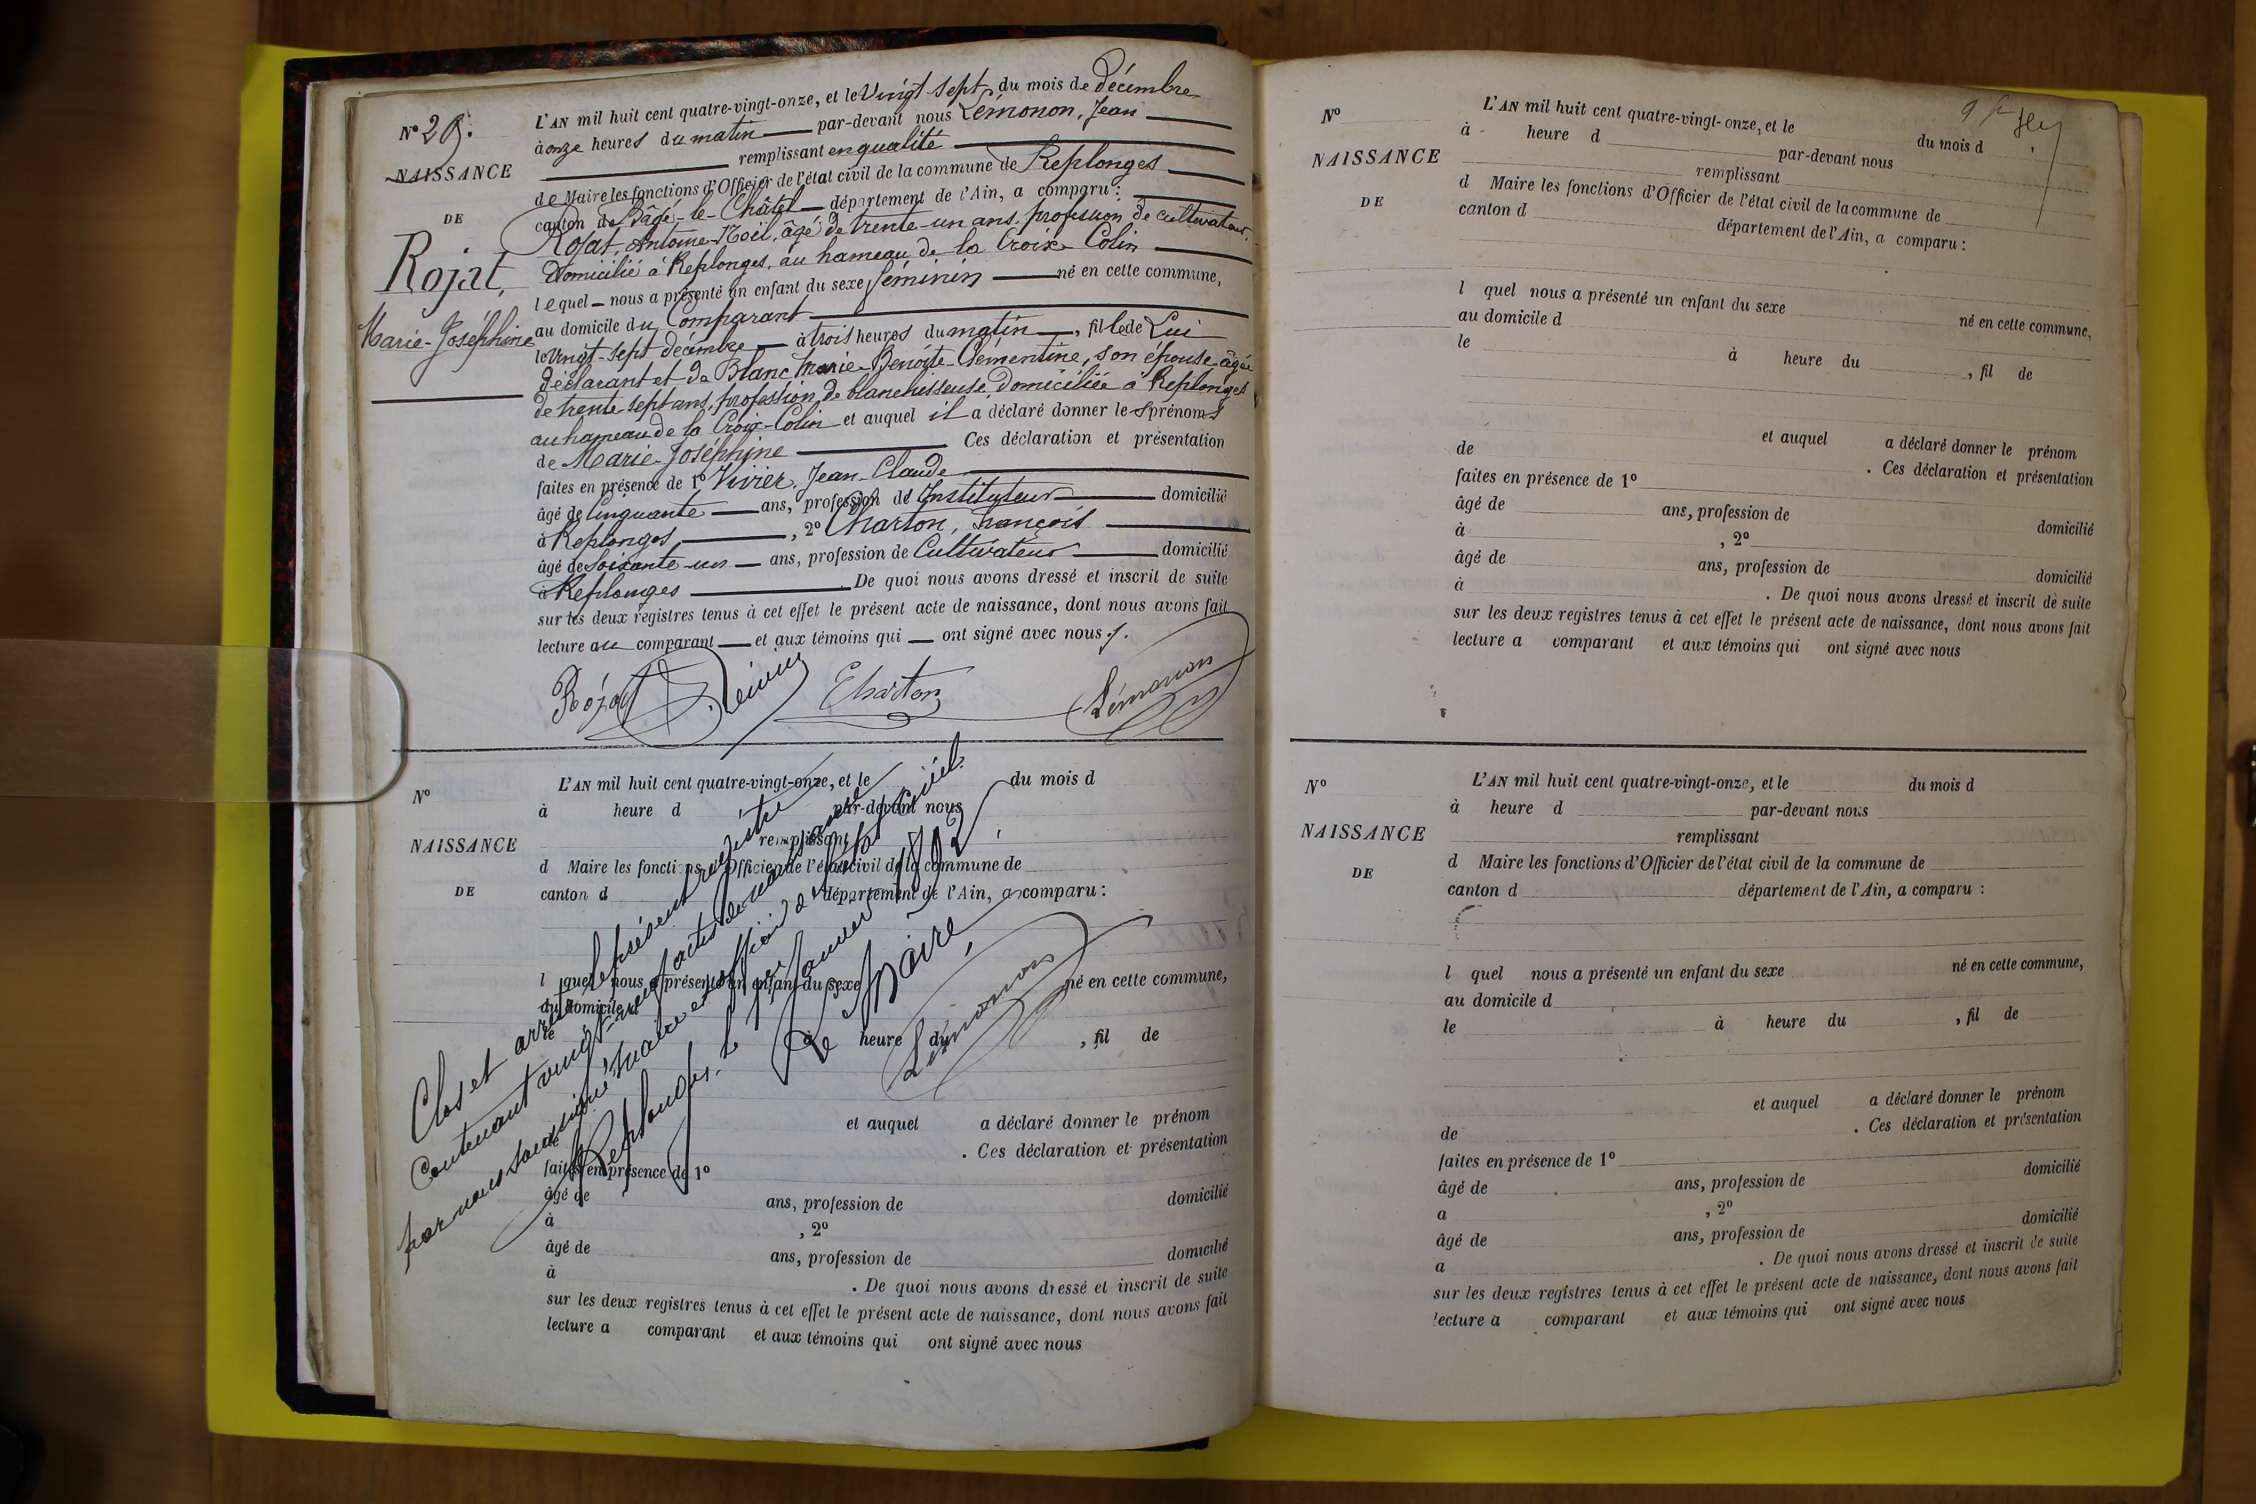 N° 29.
NAISSANCE
DE
Rojat,
Marie-Joséphine
L'AN mil huit cent quatre-vingt-onze, et le Vingt-sept du mois de Décembre
à onze heures du matin par-devant nous Lémonon, Jean
remplissant en qualité
de Maire les fonctions d'Officier de l'état civil de la commune de Replonges
canton de Bâgé-le-Châtel département de l'Ain, a comparu :
Rojat, Antoine-Noël, âgé de trente-un ans, profession de cultivateur,
Domicilié à Replonges, au hameau de la Croix-Colin
lequel nous a présenté un enfant du sexe féminin né en cette commune,
au domicile du Comparant
le vingt-sept décembre à trois heures du matin, fille de Lui
déclarant et de Blanc Marie-Benoite-Clémentine, son épouse âgée
de trente-sept ans, profession de blanchisseuse, domiciliée à Replonges
au hameau de la Croix-Colin et auquel il a déclaré donner les prénoms
de Marie-Joséphine Ces déclaration et présentation
faites en présence de 1° Vivier, Jean-Claude
âgé de Cinquante ans, profession de Instituteur domicilié
à Replonges, 2° Charton, François
âgé de soixante-un ans, profession de Cultivateur domicilié
à Replonges De quoi nous avons dressé et inscrit de suite
sur les deux registres tenus à cet effet le présent acte de naissance, dont nous avons fait
lecture au comparant et aux témoins qui ont signé avec nous.
Rojat Vivier Charton Lémonon
N°
NAISSANCE
DE
L'AN mil huit cent quatre-vingt-onze, et le du mois d
à heure d par-devant nous
remplissant
d Maire les fonctions d'Officier de l'état civil de la commune de
canton d département de l'Ain, a comparu :
l quel nous a présenté un enfant du sexe né en cette commune,
au domicile d
le à heure du , fil de
et auquel a déclaré donner le prénom
de . Ces déclaration et présentation
faites en présence de 1°
âgé de ans, profession de domicilié
à , 2°
âgé de ans, profession de domicilié
à . De quoi nous avons dressé et inscrit de suite
sur les deux registres tenus à cet effet le présent acte de naissance, dont nous avons fait
lecture a comparant et aux témoins qui ont signé avec nous
Clos et arrêté le présent registre
Contenant vingt-neuf actes de naissance
par nous soussigné Maire et officier de l'état civil.
Replonges, le 1er Janvier 1892
Le Maire,
Lémonon
N°
NAISSANCE
DE
L'AN mil huit cent quatre-vingt-onze, et le du mois d
à heure d par-devant nous
remplissant
d Maire les fonctions d'Officier de l'état civil de la commune de
canton d département de l'Ain, a comparu :
l quel nous a présenté un enfant du sexe né en cette commune,
au domicile d
le à heure du , fil de
et auquel a déclaré donner le prénom
de . Ces déclaration et présentation
faites en présence de 1°
âgé de ans, profession de domicilié
à , 2°
âgé de ans, profession de domicilié
à . De quoi nous avons dressé et inscrit de suite
sur les deux registres tenus à cet effet le présent acte de naissance, dont nous avons fait
lecture a comparant et aux témoins qui ont signé avec nous
N°
NAISSANCE
DE
L'AN mil huit cent quatre-vingt-onze, et le du mois d
à heure d par-devant nous
remplissant
d Maire les fonctions d'Officier de l'état civil de la commune de
canton d département de l'Ain, a comparu :
l quel nous a présenté un enfant du sexe né en cette commune,
au domicile d
le à heure du , fil de
et auquel a déclaré donner le prénom
de . Ces déclaration et présentation
faites en présence de 1°
âgé de ans, profession de domicilié
a , 2°
âgé de ans, profession de domicilié
a . De quoi nous avons dressé et inscrit de suite
sur les deux registres tenus à cet effet le présent acte de naissance, dont nous avons fait
lecture a comparant et aux témoins qui ont signé avec nous